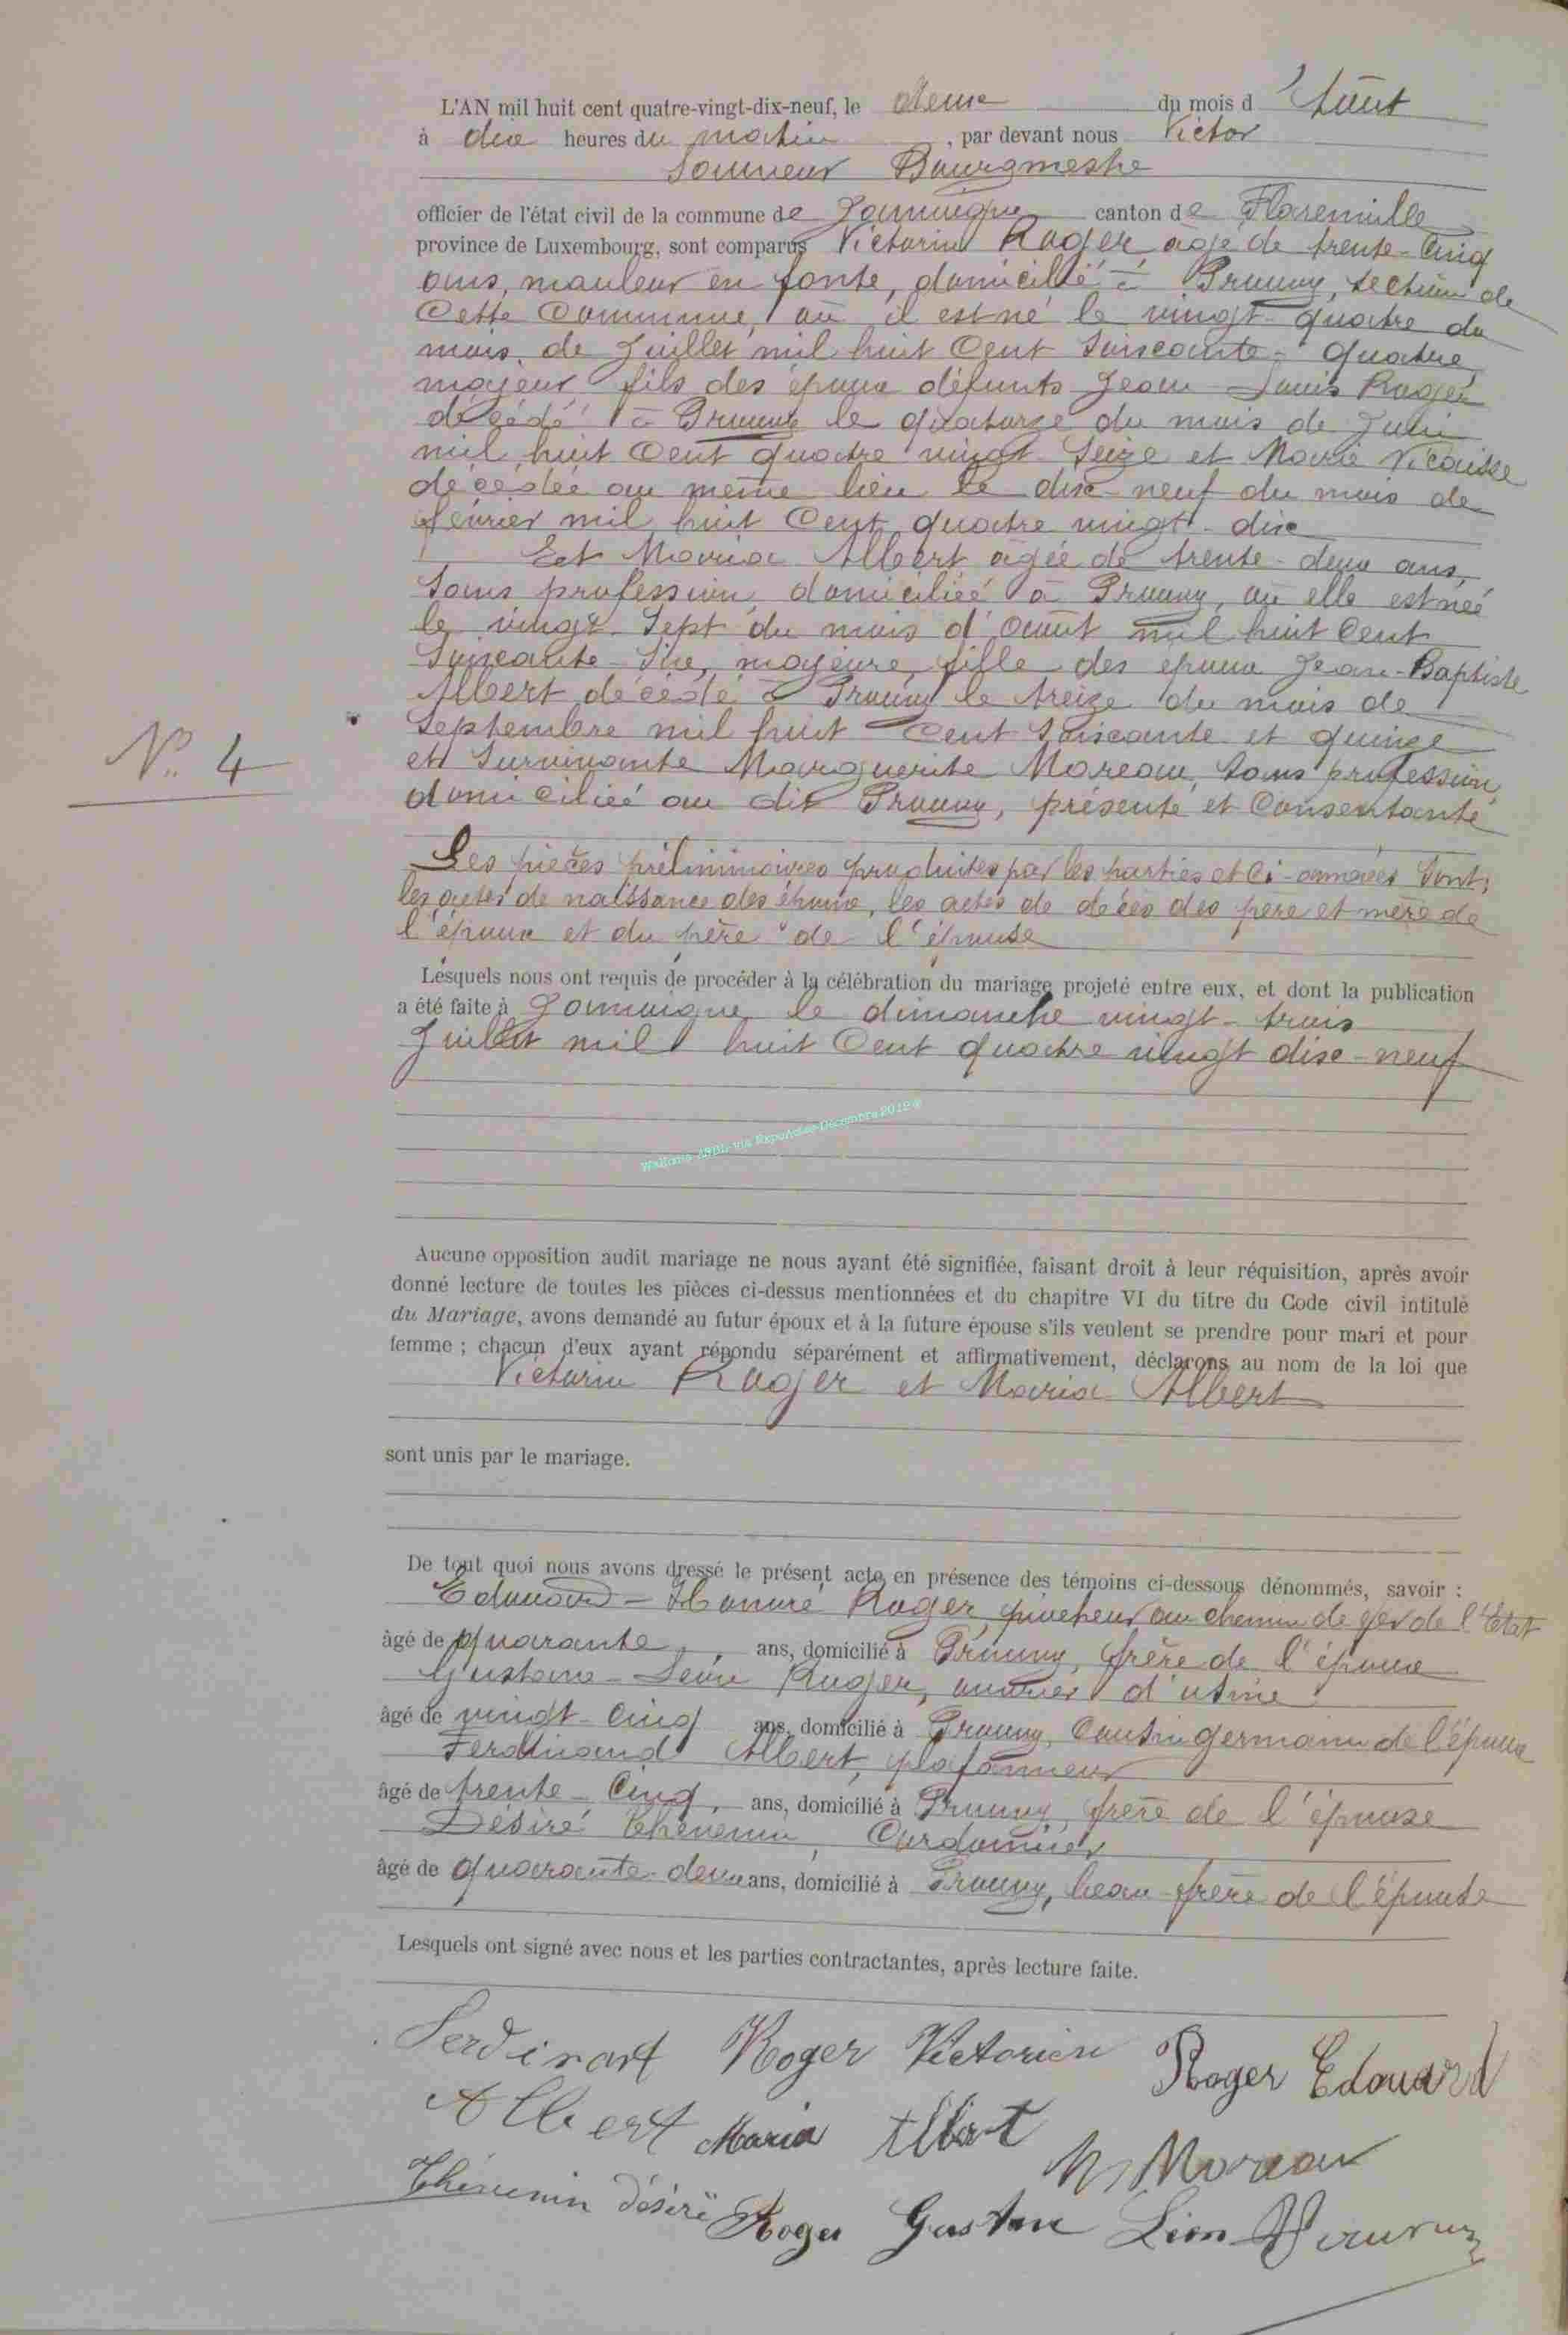 L'AN mil huit cent quatre-vingt-dix-neuf, le deux du mois d'Août
à dix heures du matin, par devant nous Victor
Bourgmestre
officier de l'état civil de la commune de Jamoigne canton de Florenville
province de Luxembourg, sont comparus Victorin Roger, âgé de trente-cinq
ans, mouleur en fonte, domicilié à Prouvy, section de
cette commune, où il est né le vingt-quatre du
mois de Juillet mil huit cent soixante-quatre,
majeur, fils des époux défunts Jean-Louis Roger
décédé à Prouvy le quatorze du mois de Juin
mil huit cent quatre vingt seize et Marie Nicaisse
décédée au même lieu le dix-neuf du mois de
février mil huit cent quatre vingt-dix
Et Maria Albert âgée de trente-deux ans,
sans profession, domiciliée à Prouvy, où elle est née
le vingt-sept du mois d'août mil huit cent
soixante-six, majeure, fille des époux Jean-Baptiste
Albert décédé à Prouvy le treize du mois de
Septembre mil huit cent soixante et quinze
et survivante Marguerite Moreau, sans profession,
domiciliée au dit Prouvy, présente et consentante
N° 4
Les pièces préliminaires produites par les parties et ci-annexées sont:
les actes de naissance des époux, les actes de décès des père et mère de
l'époux et du père de l'épouse
Lesquels nous ont requis de procéder à la célébration du mariage projeté entre eux, et dont la publication
a été faite à Jamoigne le dimanche vingt-trois
Juillet mil huit cent quatre vingt dix-neuf
Wallonia ASBL via Décembre 2012 ©
Aucune opposition audit mariage ne nous ayant été signifiée, faisant droit à leur réquisition, après avoir
donné lecture de toutes les pièces ci-dessus mentionnées et du chapitre VI du titre du Code civil intitulé
du Mariage, avons demandé au futur époux et à la future épouse s'ils veulent se prendre pour mari et pour
femme ; chacun d'eux ayant répondu séparément et affirmativement, déclarons au nom de la loi que
Victorin Roger et Maria Albert
sont unis par le mariage.
De tout quoi nous avons dressé le présent acte en présence des témoins ci-dessous dénommés, savoir :
Edouard-Honoré Roger, piocheur au chemin de fer de l'Etat
âgé de quarante ans, domicilié à Prouvy, frère de l'époux
Gustave-Léon Roger, ouvrier d'usine
âgé de vingt-cinq ans, domicilié à Prouvy, cousin germain de l'époux
Ferdinand Albert, plafonneur
âgé de trente-cinq, ans, domicilié à Prouvy, frère de l'épouse
Désiré Thévenin, Cordonnier
âgé de quarante-deux ans, domicilié à Prouvy, beau-frère de l'épouse
Lesquels ont signé avec nous et les parties contractantes, après lecture faite.
Ferdinant Roger Victorien Roger Edouard
Albert Maria Albert M Moreau
Thévenin Désiré Roger Gustave Léon